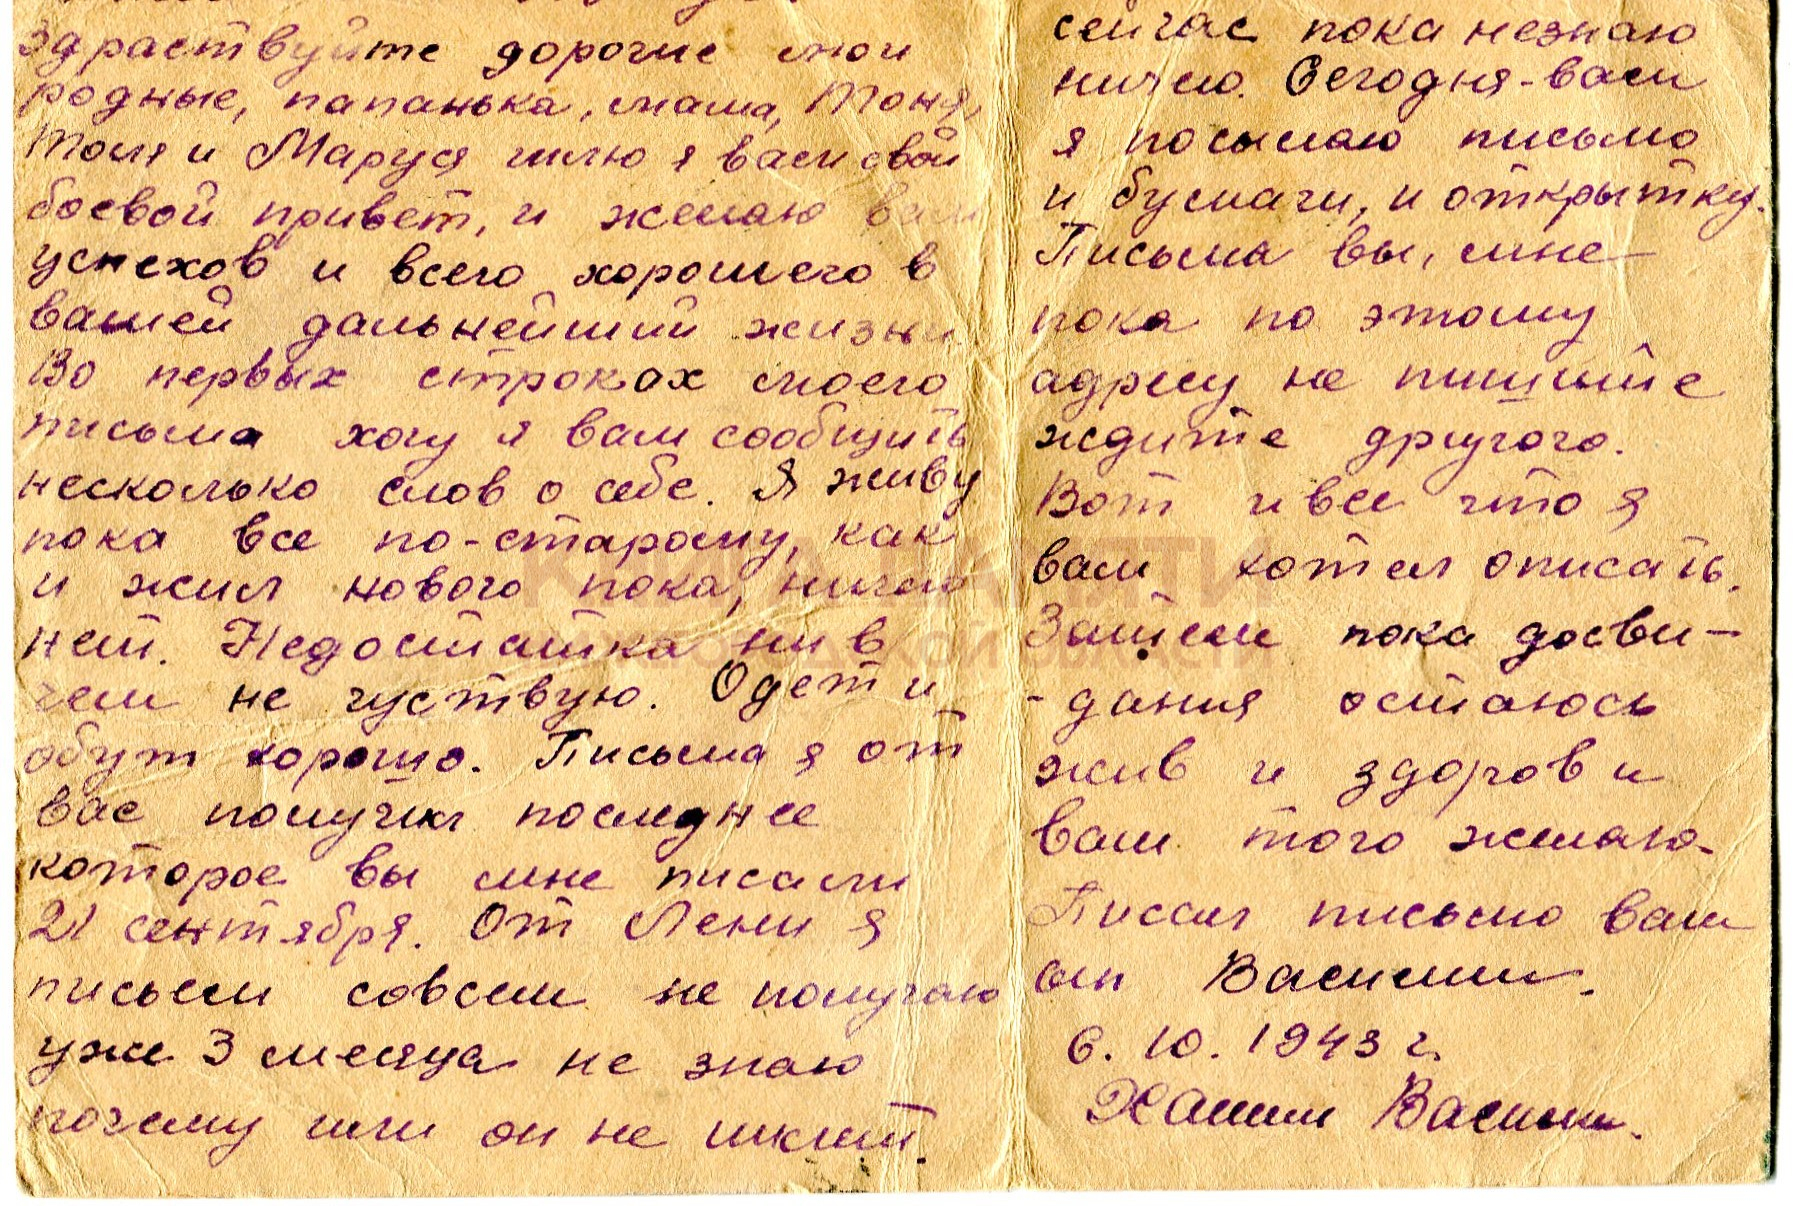 здраствуйте дорогие мои
родные, папанька, мама, Тоня,
Толя и Маруся шлю я вам свой
боевой привет, и желаю вам
успехов и всего хорошего в
вашей дальнейший жизни.
Во первых строках моего
письма хочу я вам сообщить
несколько слов о себе. Я живу
пока все по-старому, как
и жил нового пока, ничего
нет. Недостатка ни в
чем не чуствую. Одет и
обут хорошо. Письма я от
вас получил последнее
которое вы мне писали
21 сентября. От Лени я
писем совсем не получаю
уже 3 месяца не знаю
почему или он не шлет.
сейчас пока незнаю
ничего. Сегодня-вам
я посылаю письмо
и бумаги, и открытку.
Письма вы, мне
пока по этому
адресу не пишите
ждите другого.
Вот и все что я
вам хотел описать.
Затем пока досви-
-дания остаюсь
жив и здоров и
вам того желаю.
Писал письмо ваш
сын Василий.
6. 10. 1943 г.
Василий.
КНИГА ПАМЯТИ
НИЖЕГОРОДСКОЙ ОБЛАСТИ